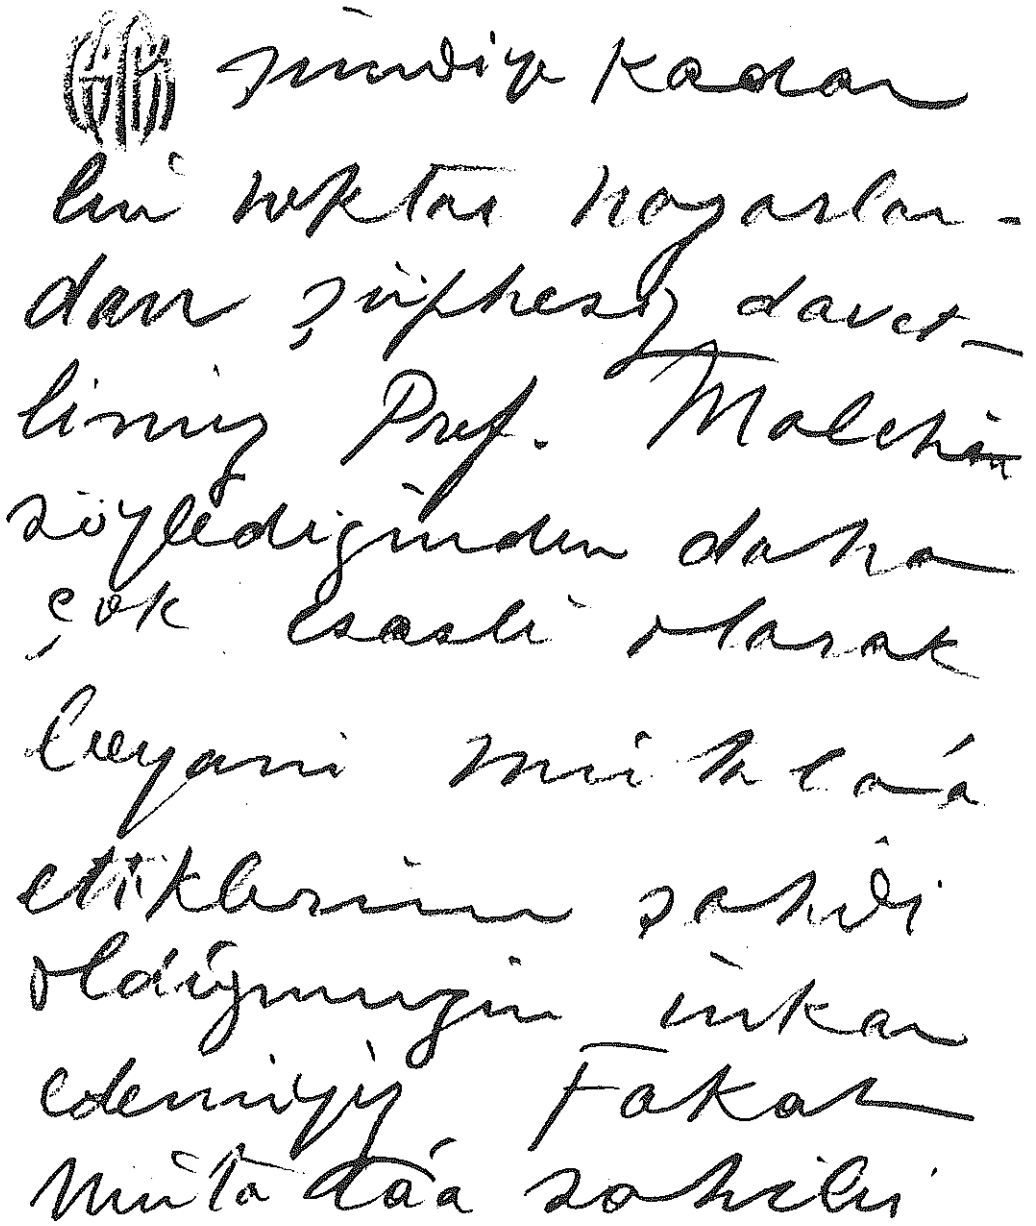 şimdiye kadar
bu noktai nazarlar-
dan şüphesiz davet-
limiz Prof. Malche'in
söylediğinden daha
çok esaslı olarak
beyanı mütalâa
ettiklerinin şahidi
olduğumuzun inkâr
edemeyiz Fakat
mütalâa sahibi